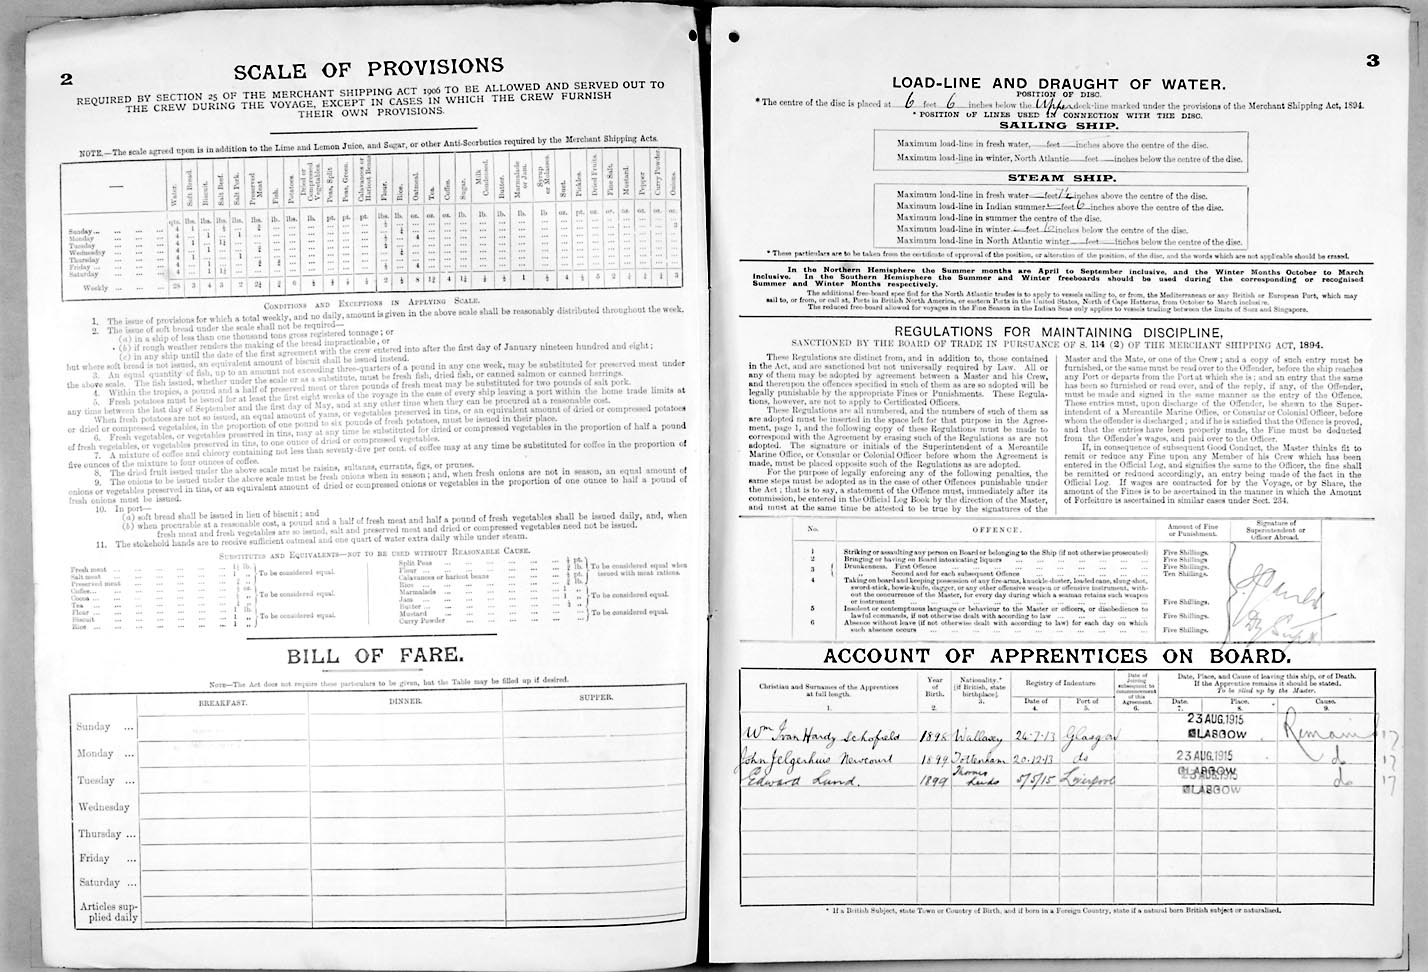 2
SCALE OF PROVISIONS
REQUIRED BY SECTION 25 OF THE MERCHANT SHIPPING ACT 1906 TO BE ALLOWED AND SERVED OUT TO
THE CREW DURING THE VOYAGE, EXCEPT IN CASES IN WHICH THE CREW FURNISH
THEIR OWN PROVISIONS.
NOTE.—The scale agreed upon is in addition to the Lime and Lemon Juice, and Sugar, or other Anti-Scorbutics required by the Merchant Shipping Acts.
Water. Soft Bread. Biscuit. Salt Beef. Salt Pork. Preserved Meat Fish. Potatoes. Dried or Compressed Vegetables. Peas, Split Peas, Green. Calavances or Haricot Beans Flour. Rice. Oatmeal. Tea. Coffee. Sugar. Milk Condensed. Butter. Marmalade or Jam. Syrup or Molasses. Suet. Pickles. Dried Fruits. Fine Salt. Mustard. Pepper Curry Powder. Onions.
Sunday...
Monday
Tuesday
Wednesday
Thursday
Friday ...
Saturday
Weekly
CONDITIONS AND EXCEPTIONS IN APPLYING SCALE.
1. The issue of provisions for which a total weekly, and no daily, amount is given in the above scale shall be reasonably distributed throughout the week.
2. The issue of soft bread under the scale shall not be required—
(a) in a ship of less than one thousand tons gross registered tonnage; or
(b) if rough weather renders the making of the bread impracticable, or
(c) in any ship until the date of the first agreement with the crew entered into after the first day of January nineteen hundred and eight;
but where soft bread is not issued, an equivalent amount of biscuit shall be issued instead.
3. An equal quantity of fish, up to an amount not exceeding three-quarters of a pound in any one week, may be substituted for preserved meat under
the above scale. The fish issued, whether under the scale or as a substitute, must be fresh fish, dried fish, or canned salmon or canned herrings.
4. Within the tropics, a pound and a half of preserved meat or three pounds of fresh meat may be substituted for two pounds of salt pork.
5. Fresh potatoes must be issued for at least the first eight weeks of the voyage in the case of every ship leaving a port within the home trade limits at
any time between the last day of September and the first day of May, and at any other time when they can be procured at a reasonable cost.
When fresh potatoes are not so issued, an equal amount of yams, or vegetables preserved in tins, or an equivalent amount of dried or compressed potatoes
or dried or compressed vegetables, in the proportion of one pound to six pounds of fresh potatoes, must be issued in their place.
6. Fresh vegetables, or vegetables preserved in tins, may at any time be substituted for dried or compressed vegetables in the proportion of half a pound
of fresh vegetables, or vegetables preserved in tins, to one ounce of dried or compressed vegetables.
7. A mixture of coffee and chicory containing not less than seventy-five per cent. of coffee may at any time be substituted for coffee in the proportion of
five ounces of the mixture to four ounces of coffee.
8. The dried fruit issued under the above scale must be raisins, sultanas, currants, figs, or prunes.
9. The onions to be issued under the above scale must be fresh onions when in season; and, when fresh onions are not in season, an equal amount of
onions or vegetables preserved in tins, or an equivalent amount of dried or compressed onions or vegetables in the proportion of one ounce to half a pound of
fresh onions must be issued.
10. In port—
(a) soft bread shall be issued in lieu of biscuit; and
(b) when procurable at a reasonable cost, a pound and a half of fresh meat and half a pound of fresh vegetables shall be issued daily, and, when
fresh meat and fresh vegetables are so issued, salt and preserved meat and dried or compressed vegetables need not be issued.
11. The stokehold hands are to receive sufficient oatmeal and one quart of water extra daily while under steam.
SUBSTITUTES AND EQUIVALENTS—NOT TO BE USED WITHOUT REASONABLE CAUSE.
Fresh meat
Salt meat
Preserved meat
To be considered equal.
Coffee...
Cocoa ...
Tea
To be considered equal.
Flour ...
Biscuit
Rice ...
To be considered equal.
Split Peas
Flour ...
Calavances or haricot beans
Rice
To be considered equal when issued with meat rations.
Marmalade
Jam
Butter ...
To be considered equal.
Mustard
Curry Powder
To be considered equal.
BILL OF FARE.
NOTE—The Act does not require these particulars to be given, but the Table may be filled up if desired.
BREAKFAST. DINNER. SUPPER.
Sunday ...
Monday ...
Tuesday ...
Wednesday
Thursday ...
Friday ...
Saturday ...
Articles sup-
plied daily
3
LOAD-LINE AND DRAUGHT OF WATER.
POSITION OF DISC.
* The centre of the disc is placed at 6 feet 6 inches below the Upper deck-line marked under the provisions of the Merchant Shipping Act, 1894.
* POSITION OF LINES USED IN CONNECTION WITH THE DISC.
SAILING SHIP.
Maximum load-line in fresh water, feet inches above the centre of the disc.
Maximum load-line in winter, North Atlantic feet inches below the centre of the disc.
STEAM SHIP.
Maximum load-line in fresh water feet inches above the centre of the disc.
Maximum load-line in Indian summer feet 6 inches above the centre of the disc.
Maximum load-line in summer the centre of the disc.
Maximum load-line in winter feet inches below the centre of the disc.
Maximum load-line in North Atlantic winter feet inches below the centre of the disc.
* These particulars are to be taken from the certificate of approval of the position, or alteration of the position, of the disc, and the words which are not applicable should be erased.
In the Northern Hemisphere the Summer months are April to September inclusive, and the Winter Months October to March
inclusive. In the Southern Hemisphere the Summer and Winter freeboards should be used during the corresponding or recognised
Summer and Winter Months respectively.
The additional free-board specified for the North Atlantic trades is to apply to vessels sailing to, or from, the Mediterranean or any British or European Port, which may
sail to, or from, or call at, Ports in British North America, or eastern Ports in the United States, North of Cape Hatteras, from October to March inclusive.
The reduced free-board allowed for voyages in the Fine Season in the Indian Seas only applies to vessels trading between the limits of Suez and Singapore.
REGULATIONS FOR MAINTAINING DISCIPLINE,
SANCTIONED BY THE BOARD OF TRADE IN PURSUANCE OF S. 114 (2) OF THE MERCHANT SHIPPING ACT, 1894.
These Regulations are distinct from, and in addition to, those contained
in the Act, and are sanctioned but not universally required by Law. All or
any of them may be adopted by agreement between a Master and his Crew,
and thereupon the offences specified in such of them as are so adopted will be
legally punishable by the appropriate Fines or Punishments. These Regula-
tions, however, are not to apply to Certificated Officers.
These Regulations are all numbered, and the numbers of such of them as
are adopted must be inserted in the space left for that purpose in the Agree-
ment, page 1, and the following copy of these Regulations must be made to
correspond with the Agreement by erasing such of the Regulations as are not
adopted. The signature or initials of the Superintendent of a Mercantile
Marine Office, or Consular or Colonial Officer before whom the Agreement is
made, must be placed opposite such of the Regulations as are adopted.
For the purpose of legally enforcing any of the following penalties, the
same steps must be adopted as in the case of other Offences punishable under
the Act; that is to say, a statement of the Offence must, immediately after its
commission, be entered in the Official Log Book by the direction of the Master,
and must at the same time be attested to be true by the signatures of the
Master and the Mate, or one of the Crew; and a copy of such entry must be
furnished, or the same must be read over to the Offender, before the ship reaches
any Port or departs from the Port at which she is; and an entry that the same
has been so furnished or read over, and of the reply, if any, of the Offender,
must be made and signed in the same manner as the entry of the Offence.
These entries must, upon discharge of the Offender, be shewn to the Super-
intendent of a Mercantile Marine Office, or Consular or Colonial Officer, before
whom the offender is discharged; and if he is satisfied that the Offence is proved,
and that the entries have been properly made, the Fine must be deducted
from the Offender's wages, and paid over to the Officer.
If, in consequence of subsequent Good Conduct, the Master thinks fit to
remit or reduce any Fine upon any Member of his Crew which has been
entered in the Official Log, and signifies the same to the Officer, the fine shall
be remitted or reduced accordingly, an entry being made of the fact in the
Official Log. If wages are contracted for by the Voyage, or by Share, the
amount of the Fines is to be ascertained in the manner in which the Amount
of Forfeiture is ascertained in similar cases under Sect. 234.
No. OFFENCE. Amount of Fine or Punishment. Signature of Superintendent or Officer Abroad.
1 Striking or assaulting any person on Board or belonging to the Ship (if not otherwise prosecuted) Five Shillings.
2 Bringing or having on Board intoxicating liquors Five Shillings.
3 Drunkenness, First Offence Five Shillings.
Second and for each subsequent Offence Ten Shillings.
4 Taking on board and keeping possession of any fire-arms, knuckle-duster, loaded cane, slung-shot,
sword-stick, bowie-knife, dagger, or any other offensive weapon or offensive instrument, with-
out the concurrence of the Master, for every day during which a seaman retains such weapon
or instrument Five Shillings.
5 Insolent or contemptuous language or behaviour to the Master or officers, or disobedience to
lawful commands, if not otherwise dealt with according to law Five Shillings.
6 Absence without leave (if not otherwise dealt with according to law) for each day on which
such absence occurs Five Shillings.
ACCOUNT OF APPRENTICES ON BOARD.
Christian and Surnames of the Apprentices at full length. 1.
Year of Birth. 2.
Nationality.* [if British, state birthplace]. 3.
Registry of Indenture
Date of 4.
Port of 5.
Date of Joining subsequent to commencement of this Agreement. 6.
Date, Place, and Cause of leaving this ship, or of Death.
If the Apprentice remains it should be stated.
To be filled up by the Master.
Date. 7. Place. 8. Cause. 9.
Wm Ivan Hardy Schofield 1898 Wallasey 24.7.13 Glasgow 23 AUG.1915 GLASGOW Remains 17
John Jelgerhuis Newcourt 1899 Tottenham 20.12.13 do 23 AUG.1915 GLASGOW do 17
Edward Lund. 1899 Leeds 5/5/15 Liverpool 23 AUG.1915 GLASGOW do 17
* If a British Subject, state Town or Country of Birth, and if born in a Foreign Country, state if a natural born British subject or naturalised.